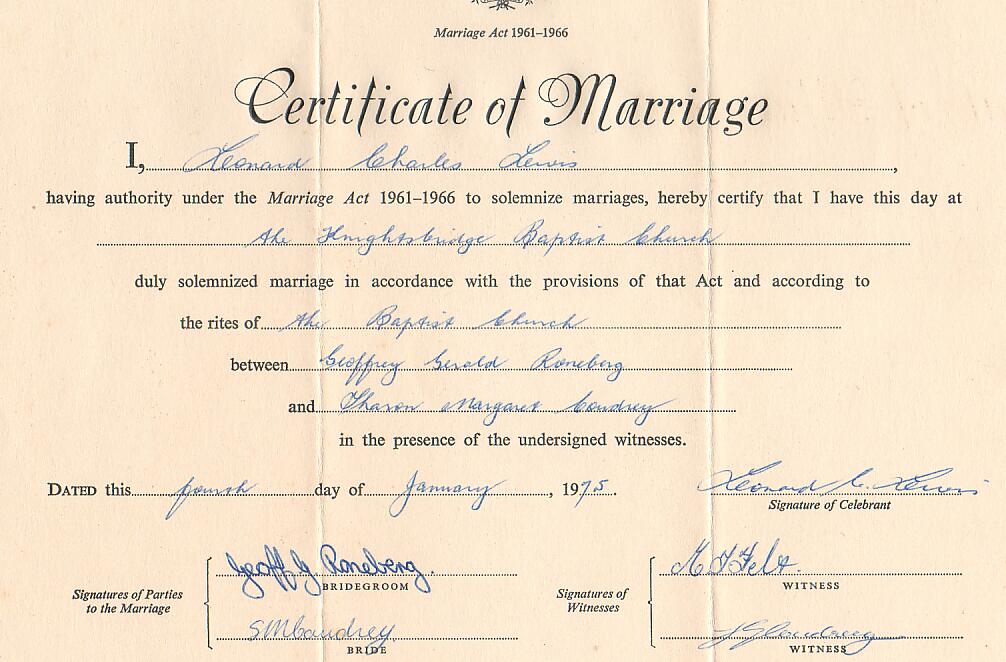 Marriage Act 1961–1966
Certificate of Marriage
I, Leonard Charles Lewis,
having authority under the Marriage Act 1961–1966 to solemnize marriages, hereby certify that I have this day at
the Knightsbridge Baptist Church
duly solemnized marriage in accordance with the provisions of that Act and according to
the rites of the Baptist Church
between Geoffrey Gerald Roneberg
and Sharon Margaret Coudrey
in the presence of the undersigned witnesses.
DATED this fourth day of January, 1975.
Leonard C. Lewis
Signature of Celebrant
Signatures of Parties to the Marriage
Geoff G Roneberg.
BRIDEGROOM
SMCoudrey
BRIDE
Signatures of Witnesses
WITNESS
WITNESS